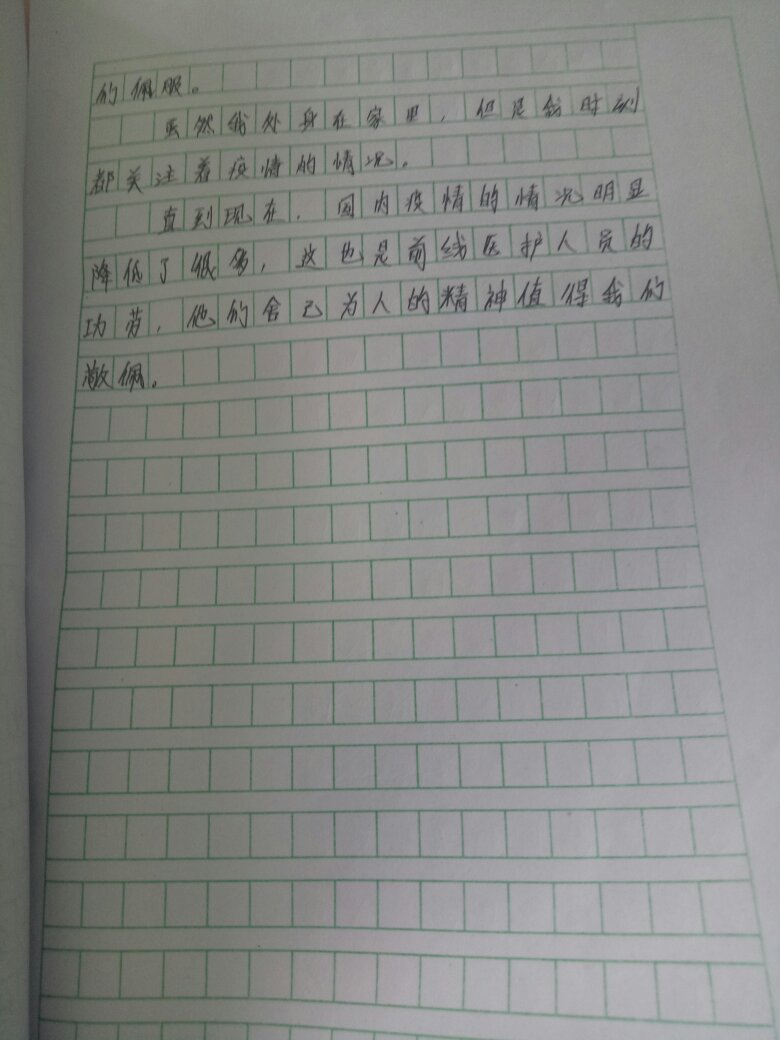 的佩服。
虽然我处身在家里，但是我时刻
都关注着疫情的情况。
直到现在，国内疫情的情况明显
降低了很多，这也是前线医护人员的
功劳，他的舍己为人的精神值得我的
敬佩。